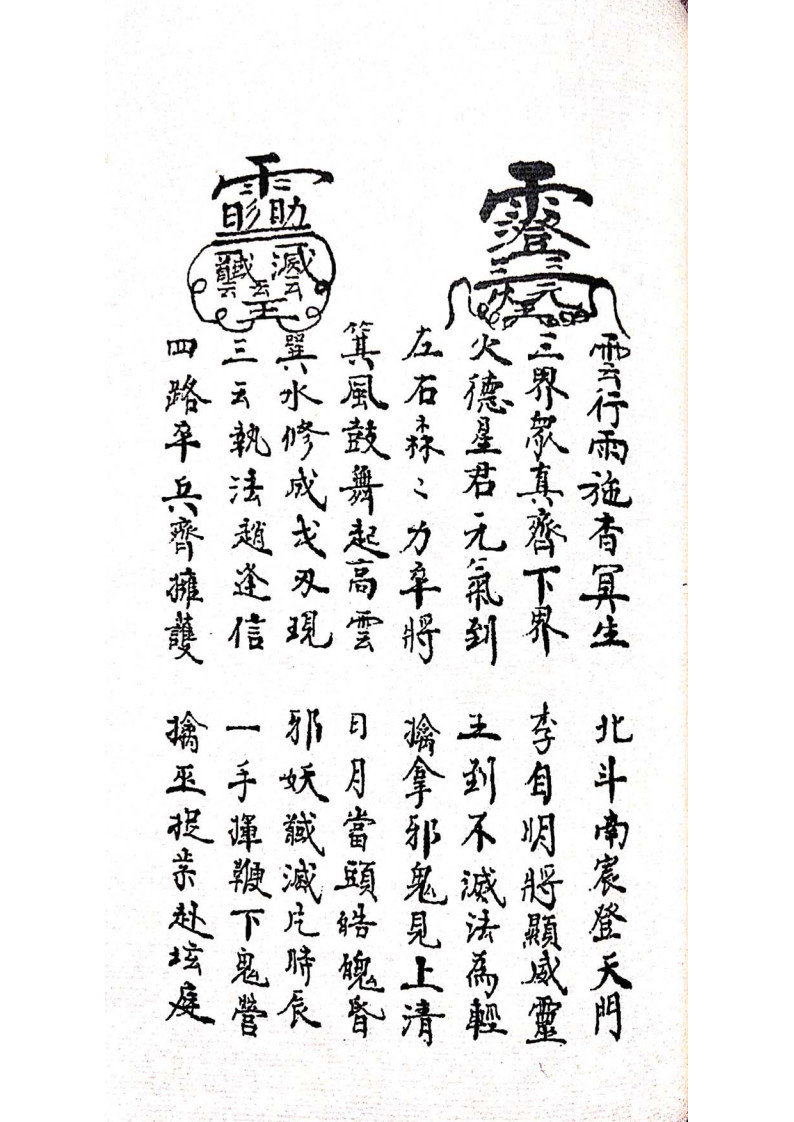 雲行雨施杳冥生 北斗南宸登天門
三界眾真齊下界 李自明將顯威靈
火德星君元氣到 王到不滅法為輕
左右森々力卒將 擒拿邪鬼見上清
箕風鼓舞起高雲 日月當頭皓魄昏
巽水修成戈刃現 邪妖馘滅片時辰
三云執法趙逢信 一手揮鞭下鬼營
四路卒兵齊擁護 擒巫捉祟赴壇庭